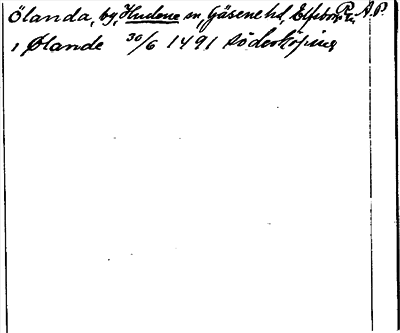 Ölanda, by, Hudene sn, Gäsene hd, Elfsb. P. A. P.
i Ølande 30/6 1491 Söderköping